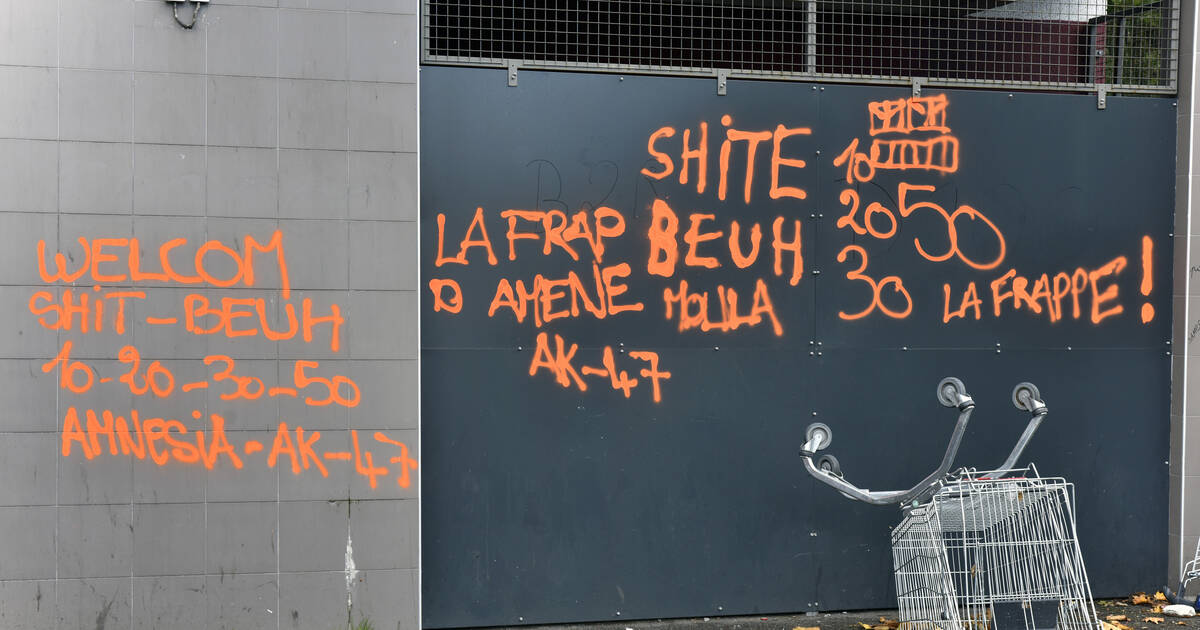 WELCOM
SHiT-BEUH
10-20-30-50
AMNESiA-AK-47
SHiTE 10
LA FRAP BEUH 20 50
D AMENE MOULA 30 LA FRAPPE!
AK-47